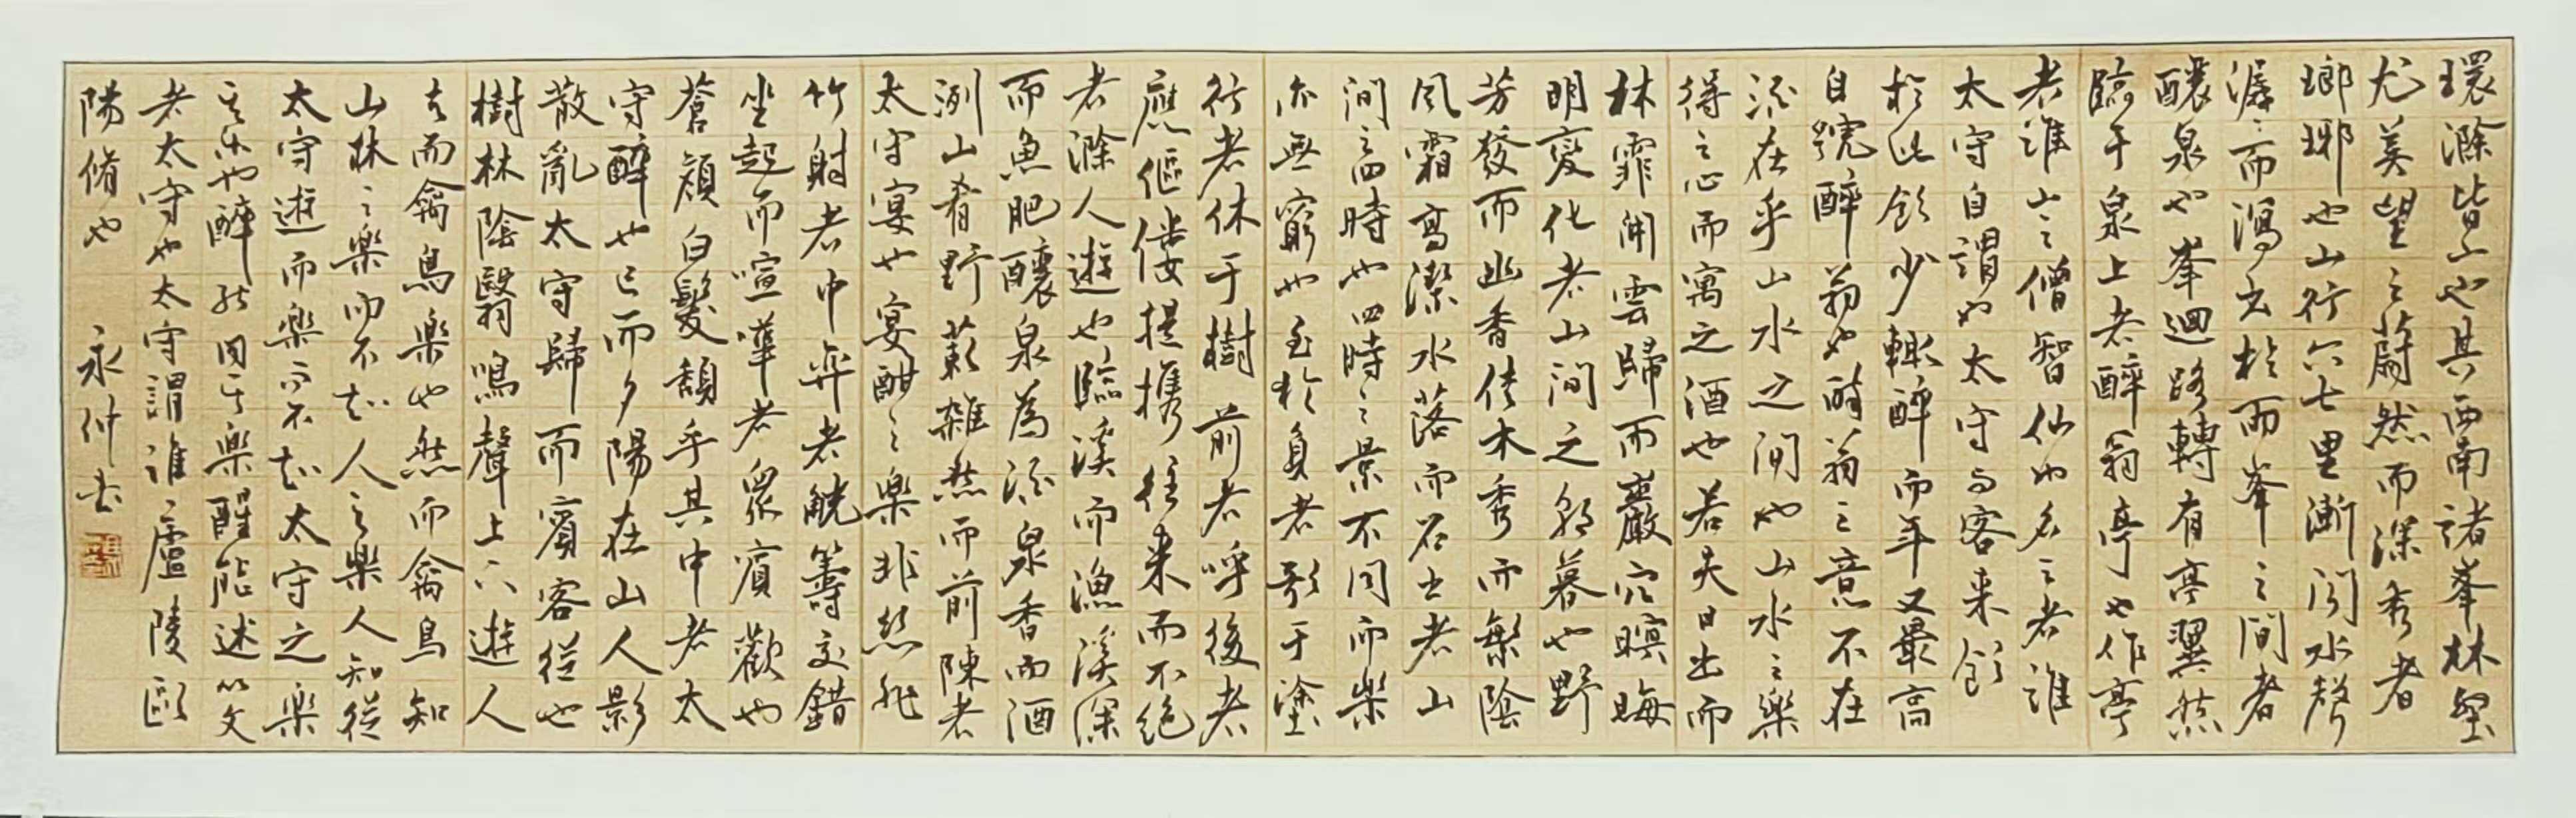 環滁皆山也其西南諸峯林壑
尤美望之蔚然而深秀者
瑯琊也山行六七里漸聞水聲
潺〻而瀉出於兩峯之間者
釀泉也峯迴路轉有亭翼然
臨于泉上者醉翁亭也作亭
者誰山之僧智仙也名之者誰
太守自謂也太守與客来飲
於此飲少輒醉而年又最高
自號醉翁也醉翁之意不在
酒在乎山水之間也山水之樂
得之心而寓之酒也若夫日出而
林霏開雲歸而巖穴暝晦
明變化者山間之朝暮也野
芳發而幽香佳木秀而繁陰
風霜高潔水落而石出者山
間之四時也四時之景不同而樂
亦無窮也至於負者歌于塗
行者休于樹前者呼後者
應傴僂提攜往来而不絕
者滁人遊也臨溪而漁溪深
而魚肥釀泉為酒泉香而酒
洌山肴野蔌雜然而前陳者
太守宴也宴酣之樂非絲非
竹射者中弈者勝觥籌交錯
坐起而喧嘩者眾賓歡也
蒼顏白髮頹乎其中者太
守醉也已而夕陽在山人影
散亂太守歸而賓客從也
樹林陰翳鳴聲上下遊人
去而禽鳥樂也然而禽鳥知
山林之樂而不知人之樂人知從
太守遊而樂而不知太守之樂
其樂也醉能同其樂醒能述以文
者太守也太守謂誰〻廬陵歐
陽脩也 永付書